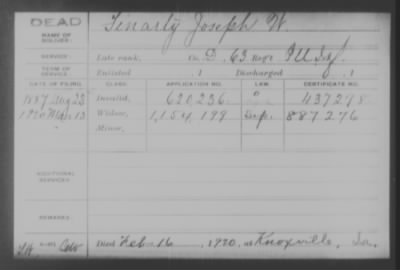 DEAD
NAME OF SOLDIER:
Finarty Joseph W.
SERVICE:
Late rank, Co. D, 63 Reg't Ill Inf.
TERM OF SERVICE
Enlisted , 1 Discharged , 1
DATE OF FILING. CLASS. APPLICATION NO. LAW. CERTIFICATE NO.
1887 Aug 23 Invalid, 620,236 437278
1920 Mar 13 Widow, 1,154,199 887276
Minor,
ADDITIONAL SERVICES:
REMARKS:
Died Feb 16, 1920, at Knoxville, Ia.